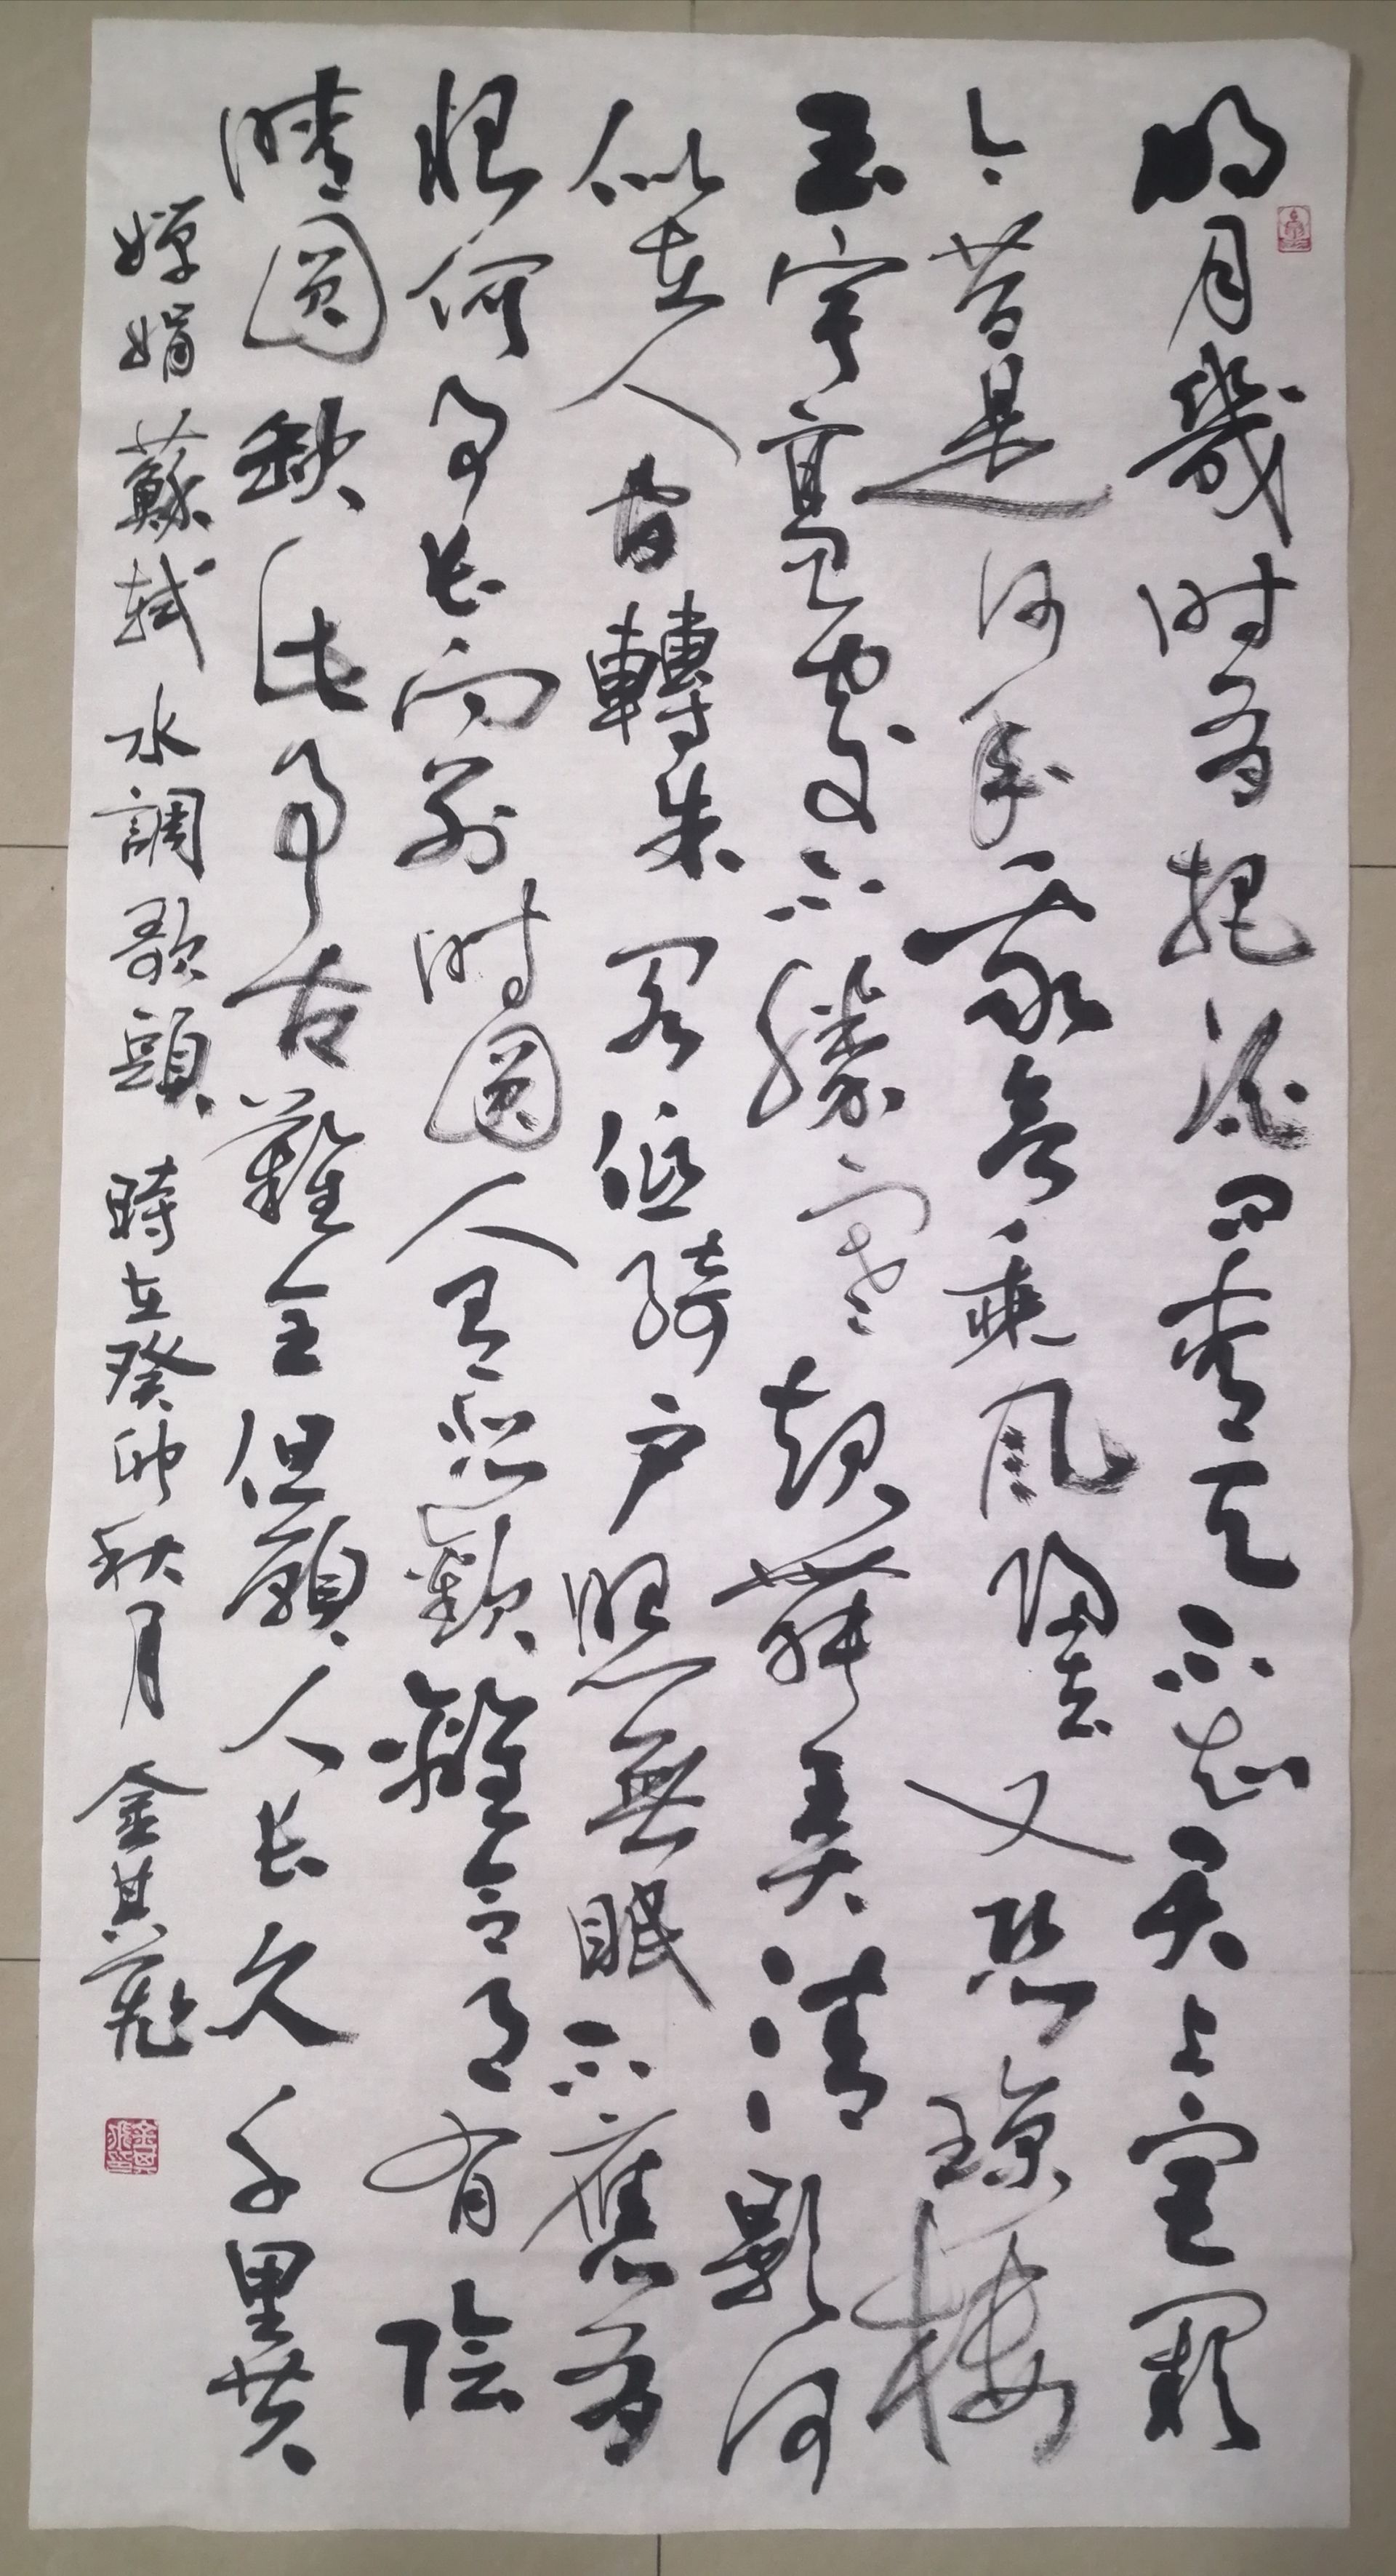 明月幾时有把酒问青天不知天上宫闕
今昔是何年我欲乘風歸去又恐瓊楼
玉宇高處不勝寒起舞弄清影何
似在人间轉朱阁低綺户照無眠不應有
恨何事长向别时圆人有悲歡離合月有陰
晴圆缺此事古難全但願人长久千里共
嬋娟 蘇軾 水調歌頭 時在癸卯秋月 金其飛